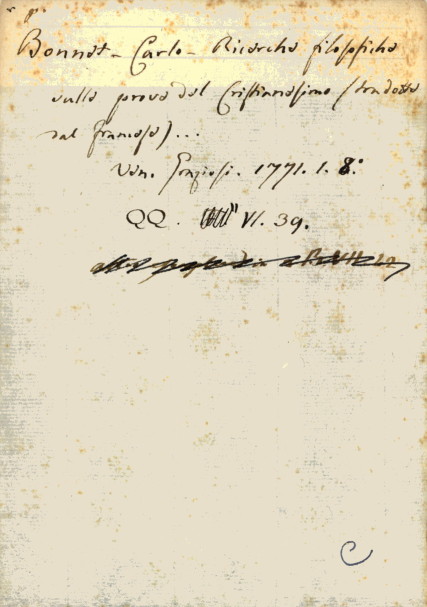 Bonnet - Carlo - Ricerche filosofiche
sulle prove del Cristianesimo (tradotte
dal francese)...
Ven. Graziosi. 1771. 1. 8.°
QQ. VI. 39.
C